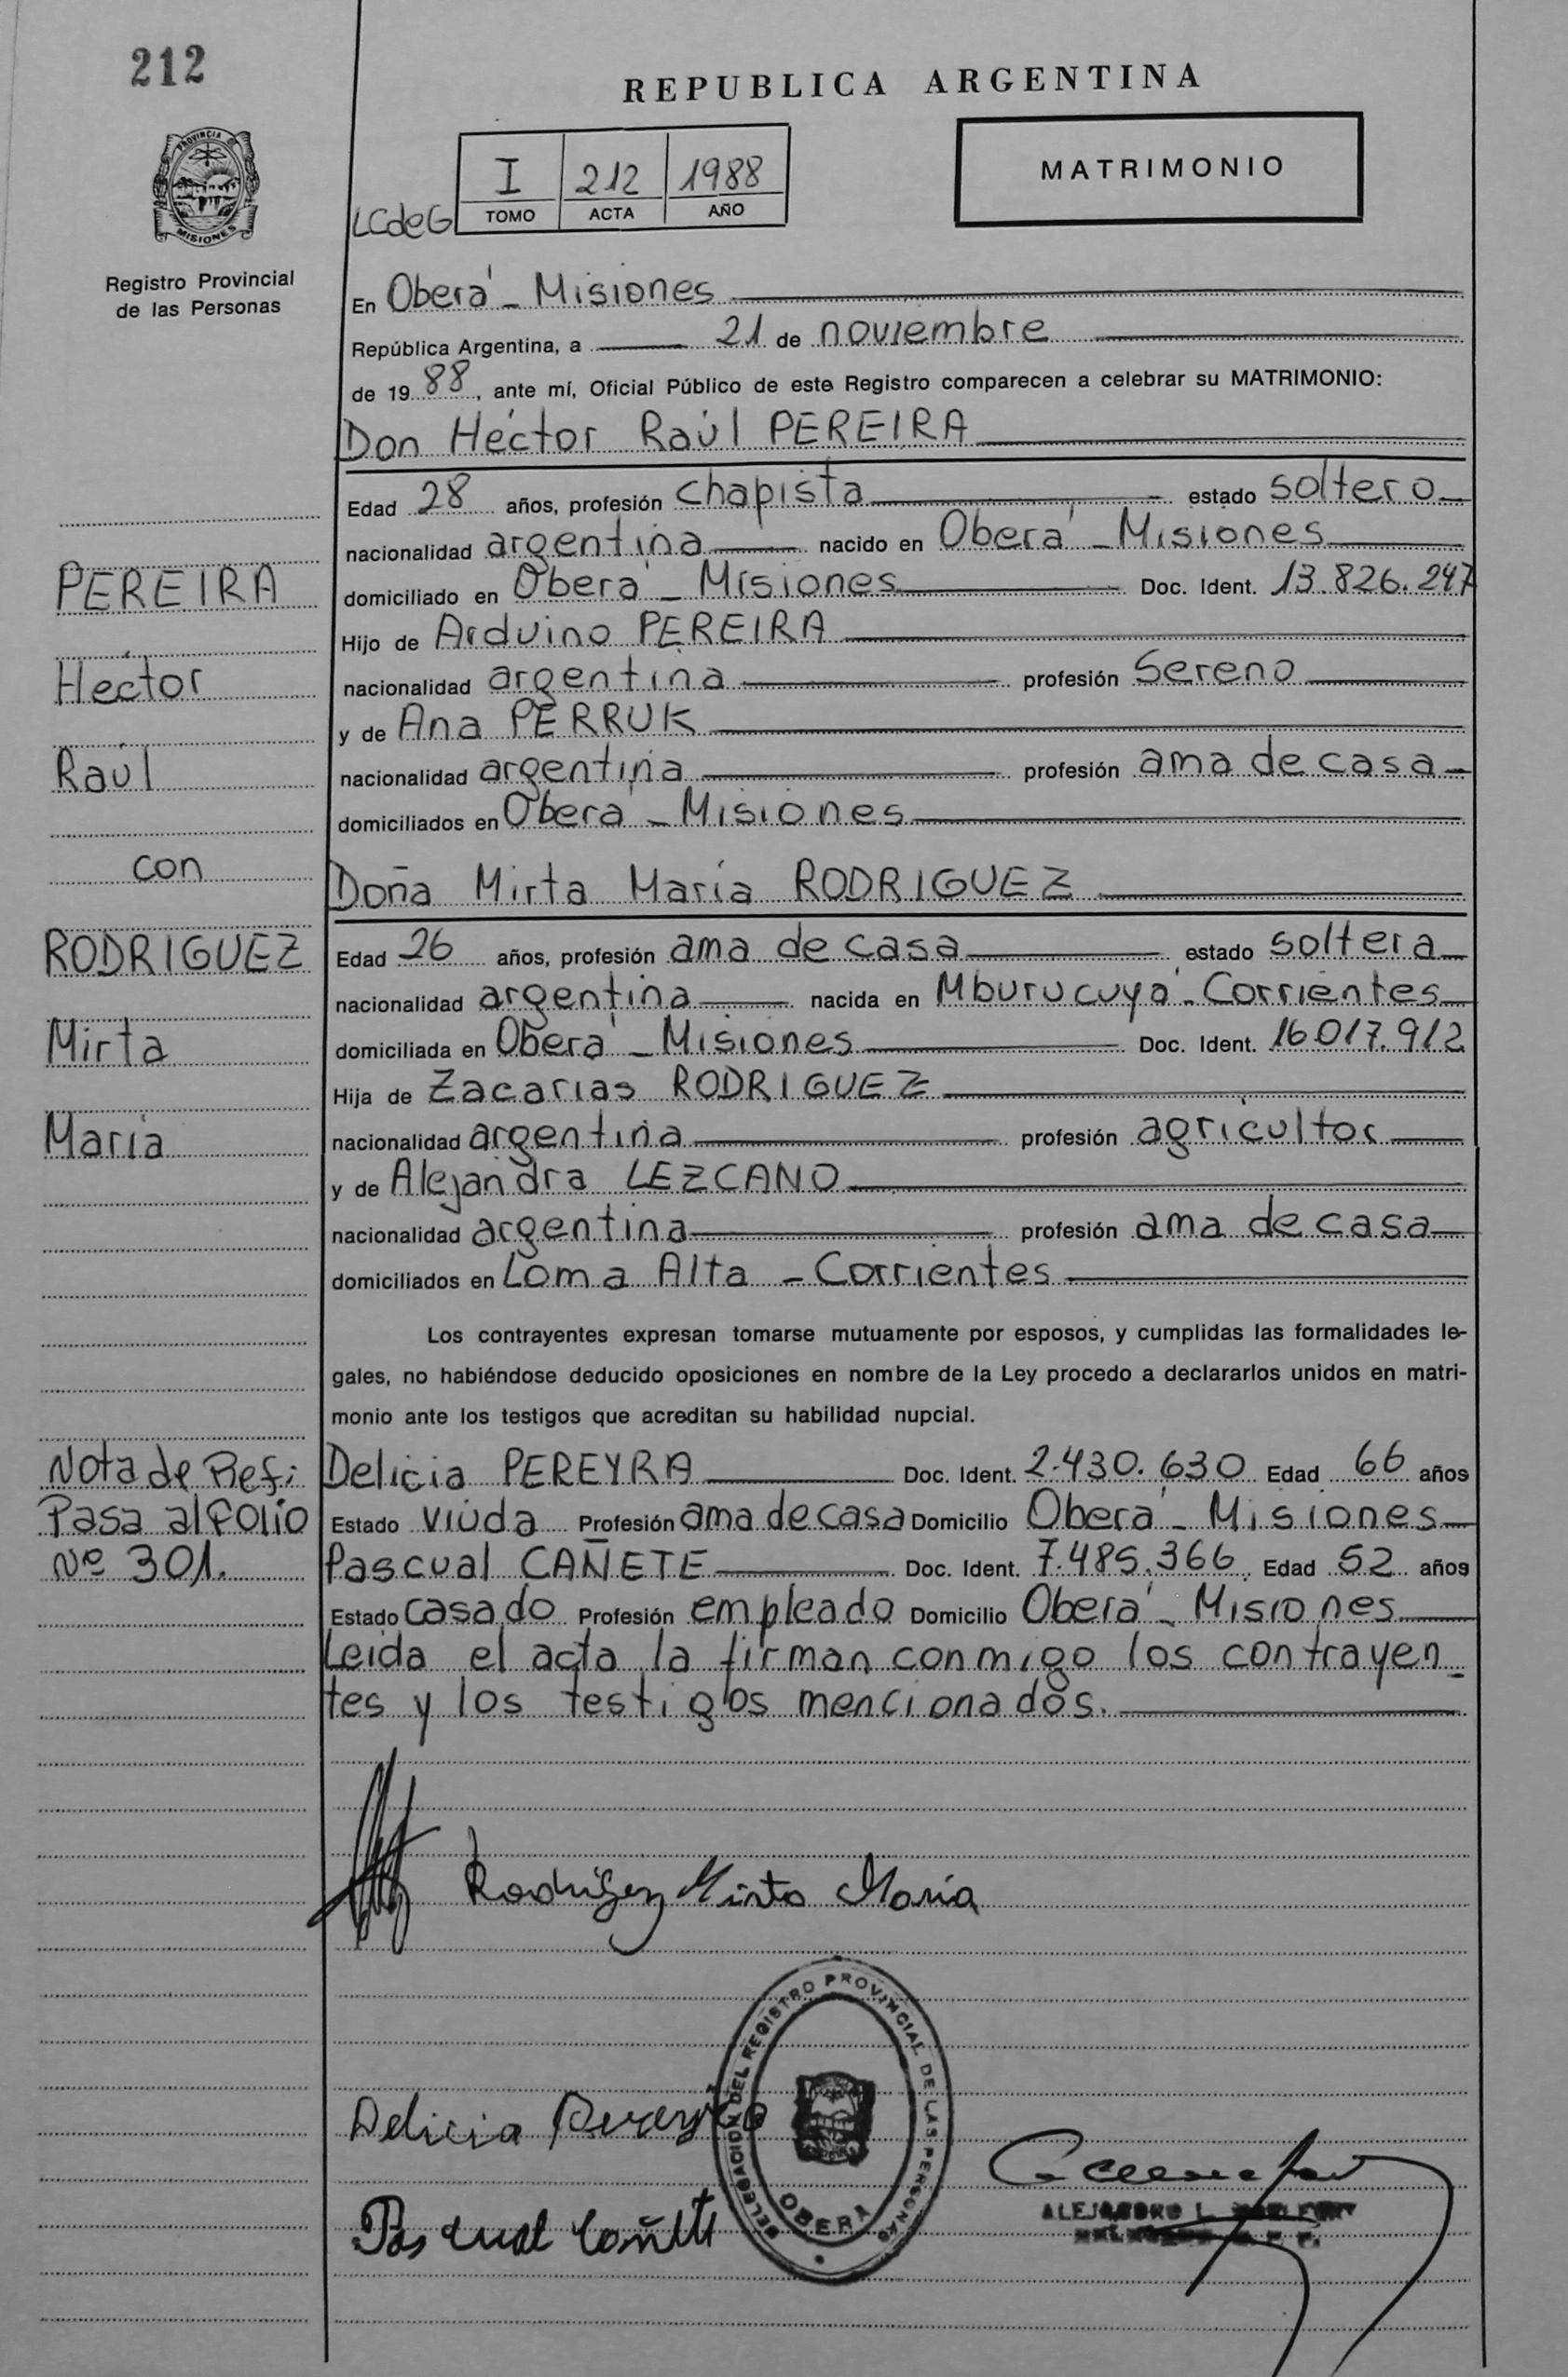 212
REPUBLICA ARGENTINA
PROVINCIA DE
MISIONES
I 212 1988
TOMO ACTA AÑO
LCdeG
MATRIMONIO
Registro Provincial
de las Personas
En Oberá - Misiones
República Argentina, a 21 de noviembre
de 1988, ante mí, Oficial Público de este Registro comparecen a celebrar su MATRIMONIO:
Don Héctor Raúl PEREIRA
Edad 28 años, profesión chapista estado soltero
nacionalidad argentina nacido en Oberá - Misiones
domiciliado en Oberá - Misiones Doc. Ident. 13.826.247
Hijo de Arduino PEREIRA
nacionalidad argentina profesión Sereno
y de Ana PERRUK
nacionalidad argentina profesión ama de casa
domiciliados en Oberá - Misiones
Doña Mirta María RODRIGUEZ
Edad 26 años, profesión ama de casa estado soltera
nacionalidad argentina nacida en Mburucuyá - Corrientes
domiciliada en Oberá - Misiones Doc. Ident. 16017.912
Hija de Zacarias RODRIGUEZ
nacionalidad argentina profesión agricultor
y de Alejandra LEZCANO
nacionalidad argentina profesión ama de casa
domiciliados en Loma Alta - Corrientes
PEREIRA
Héctor
Raúl
con
RODRIGUEZ
Mirta
María
Los contrayentes expresan tomarse mutuamente por esposos, y cumplidas las formalidades le-
gales, no habiéndose deducido oposiciones en nombre de la Ley procedo a declararlos unidos en matri-
monio ante los testigos que acreditan su habilidad nupcial.
Delicia PEREYRA Doc. Ident. 2.430.630 Edad 66 años
Estado viuda Profesión ama de casa Domicilio Oberá - Misiones
Pascual CAÑETE Doc. Ident. 7.485.366 Edad 52 años
Estado casado Profesión empleado Domicilio Oberá - Misiones
Leida el acta la firman conmigo los contrayen-
tes y los testigos mencionados.
Nota de Ref:
Pasa al Folio
Nº 301.
Rodriguez Mirta María
Delicia Pereyra
Pascual Cañete
DELEGACION DEL REGISTRO PROVINCIAL DE LAS PERSONAS
OBERA
ALEJANDRO L.